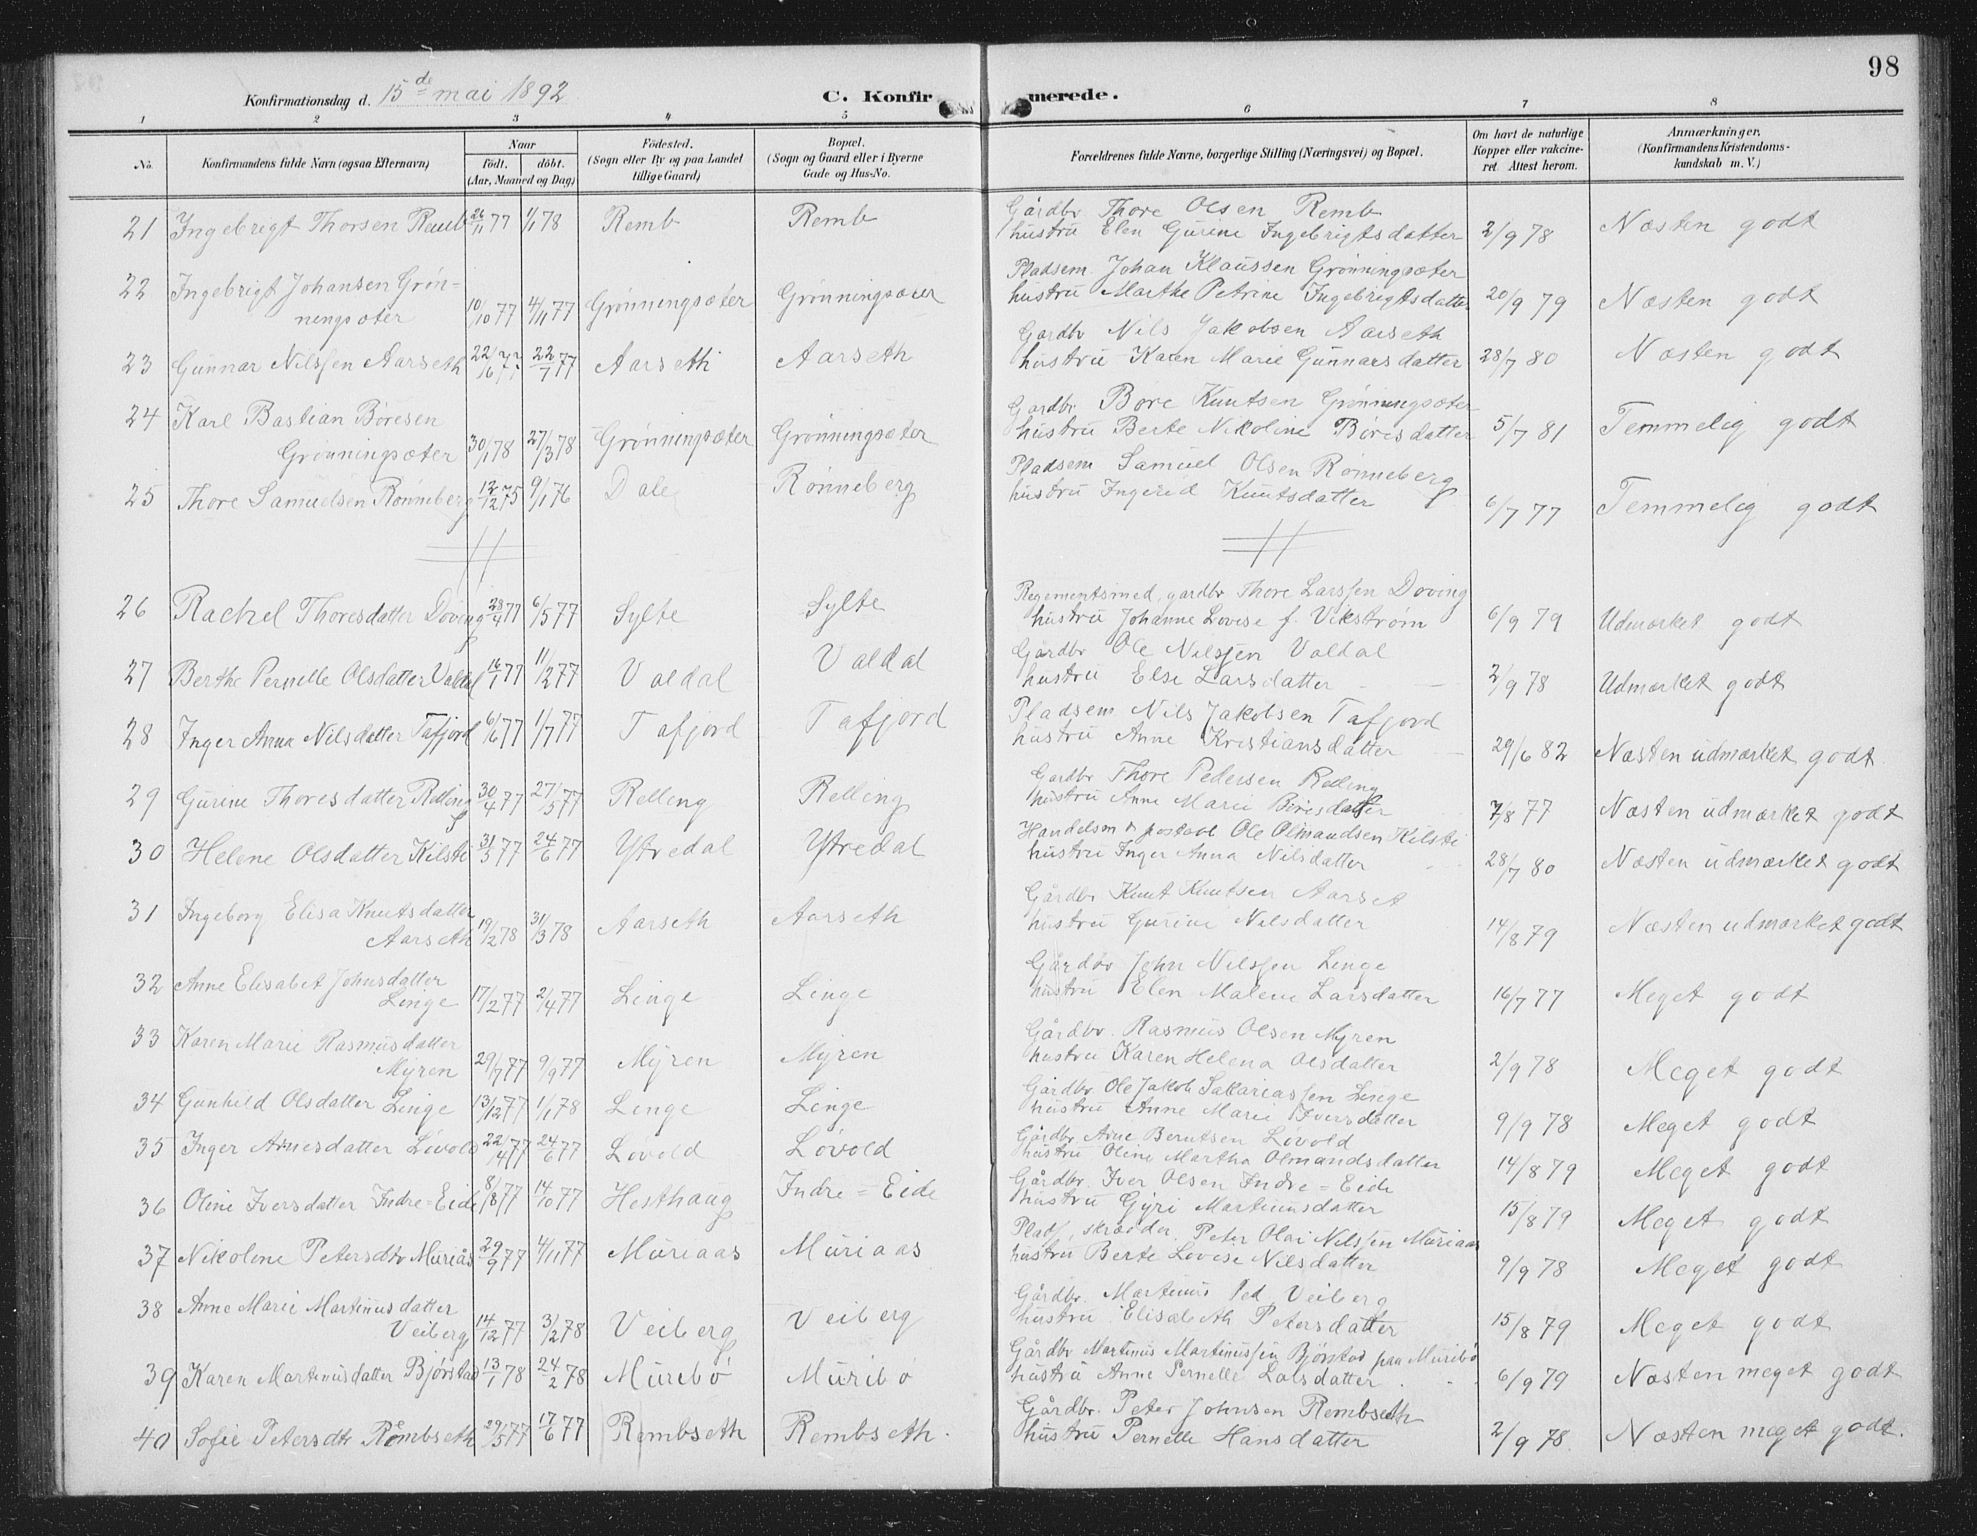 98
Konfirmationsdag d. 15de mai 1892
C. Konfirmerede.
1 2 3 4 5 6 7 8
No. Konfirmandens fulde Navn (ogsaa Efternavn) Naar født. døbt. (Aar, Maaned og Dag) Fødested. (Sogn eller By og paa Landet tillige Gaard) Bopæl. (Sogn og Gaard eller i Byerne Gade og Hus-No. Forældrenes fulde Navne, borgerlige Stilling (Næringsvei) og Bopæl. Om havt de naturlige Kopper eller vakcineret. Attest herom. Anmærkninger. (Konfirmandens Kristendomskundskab m. V.)
21 Ingebrigt Thorsen Remb 26/11 77 1/1 78 Remb Remb Gårdbr Thore Olsen Remb
hustru Elen Gurine Ingebrigtsdatter 2/9 78 Næsten godt
22 Ingebrigt Johansen Grøn-
ningsæter 10/10 77 4/11 77 Grønningsæter Grønningsæter Pladsem. Johan Klaussen Grønningsæter
hustru Marthe Petrine Ingebrigtsdatter 20/9 79 Næsten godt
23 Gunnar Nilssen Aarseth 22/6 77 22/7 77 Aarseth Aarseth Gardbr Nils Jakobsen Aarseth
hustru Karen Marie Gunnarsdatter 28/7 80 Næsten godt
24 Karl Bastian Børesen
Grønningsæter 30/1 78 27/3 78 Grønningsæter Grønningsæter Gardbr. Børe Knutsen Grønningsæter
hustru Berte Nikoline Boresdatter 5/7 81 Temmelig godt
25 Thore Samuelsen Rønneberg 12/12 75 9/1 76 Dale Rønneberg Pladsem Samuel Olsen Rønneberg
hustru Ingerid Knutsdatter 6/7 77 Temmelig godt
26 Rachel Thoresdatter Døving 28/4 77 6/5 77 Sylte Sylte Regementsmed, gardbr Thore Larssen Døving
hustru Johanne Lovise f. Vikstrøm 6/9 79 Udmærket godt
27 Berthe Pernelle Olsdatter Valdal 16/1 77 11/2 77 Valdal Valdal Gårdbr Ole Nilssen Valdal
hustru Else Larsdatter 2/9 78 Udmærket godt
28 Inger Anna Nilsdatter Tafjord 6/6 77 1/7 77 Tafjord Tafjord Pladsem Nils Jakobsen Tafjord
hustru Anne Kristiansdatter 29/6 82 Næsten udmærket godt
29 Gurine Thoresdatter Relling 30/4 77 27/5 77 Relling Relling Gardbr Thore Pedersen Relling
hustru Anne Marie Børesdatter 7/8 77 Næsten udmærket godt
30 Helene Olsdatter Kilsti 31/5 77 24/6 77 Ytredal Ytredal Handelsm & Ole Olmandsen Kilsti
hustru Inger Anna Nilsdatter 28/7 80 Næsten udmærket godt
31 Ingeborg Elisa Knutsdatter
Aarseth 19/2 78 31/3 78 Aarseth Aarseth Gårdbr Knut Knutsen Aarset
hustru Gurine Nilsdatter 14/8 79 Næsten udmærket godt
32 Anne Elisabet Johnsdatter
Linge 17/2 77 2/4 77 Linge Linge Gårdbr John Nilssen Linge
hustru Elen Malene Larsdatter 16/7 77 Meget godt
33 Karen Marie Rasmusdatter
Myren 29/7 77 9/9 77 Myren Myren Gårdbr. Rasmus Olsen Myren
hustru Karen Helena Olsdatter 2/9 78 Meget godt
34 Gunhild Olsdatter Linge 13/12 77 1/1 78 Linge Linge Gårdbr Ole Jakob Sakariassen Linge
hustru Anne Marie Iversdatter 9/9 78 Meget godt
35 Inger Arnesdatter Løvold 22/4 77 24/6 77 Løvold Løvold Gårdbr. Arne Berntsen Løvold
hustru Oline Martha Olmandsdatter 14/8 79 Meget godt
36 Oline Iversdatter Indre=Eide 8/8 77 14/10 77 Hesthaug Indre=Eide Gårdbr. Iver Olsen Indre=Eide
hustru Gyri Martinusdatter 15/8 79 Meget godt
37 Nikoline Petersdtr Muriås 29/9 77 4/11 77 Muriaas Muriaas Plads, skrædder, Peter Olai Nilssen Muriaas
hustru Berte Lovise Nilsdatter 9/9 78 Meget godt
38 Anne Marie Martinusdatter
Veiberg 14/12 77 3/2 78 Veiberg Veiberg Gårdbr. Martinus Ped. Veiberg
hustru Elisabeth Petersdatter 15/8 79 Meget godt
39 Karen Martinusdatter Bjørstad 13/1 78 24/2 78 Muribø Muribø Gårdbr Martinus Martinussen Bjørstad paa Muribø
hustru Anne Pernelle Larsdatter 6/9 79 Næsten meget godt
40 Sofie Petersdtr Rembseth 29/5 77 17/6 77 Rembseth Rembseth. Gårdbr. Peter Johnsen Rembseth
hustru Pernelle Hansdatter 2/9 78. Næsten meget godt.